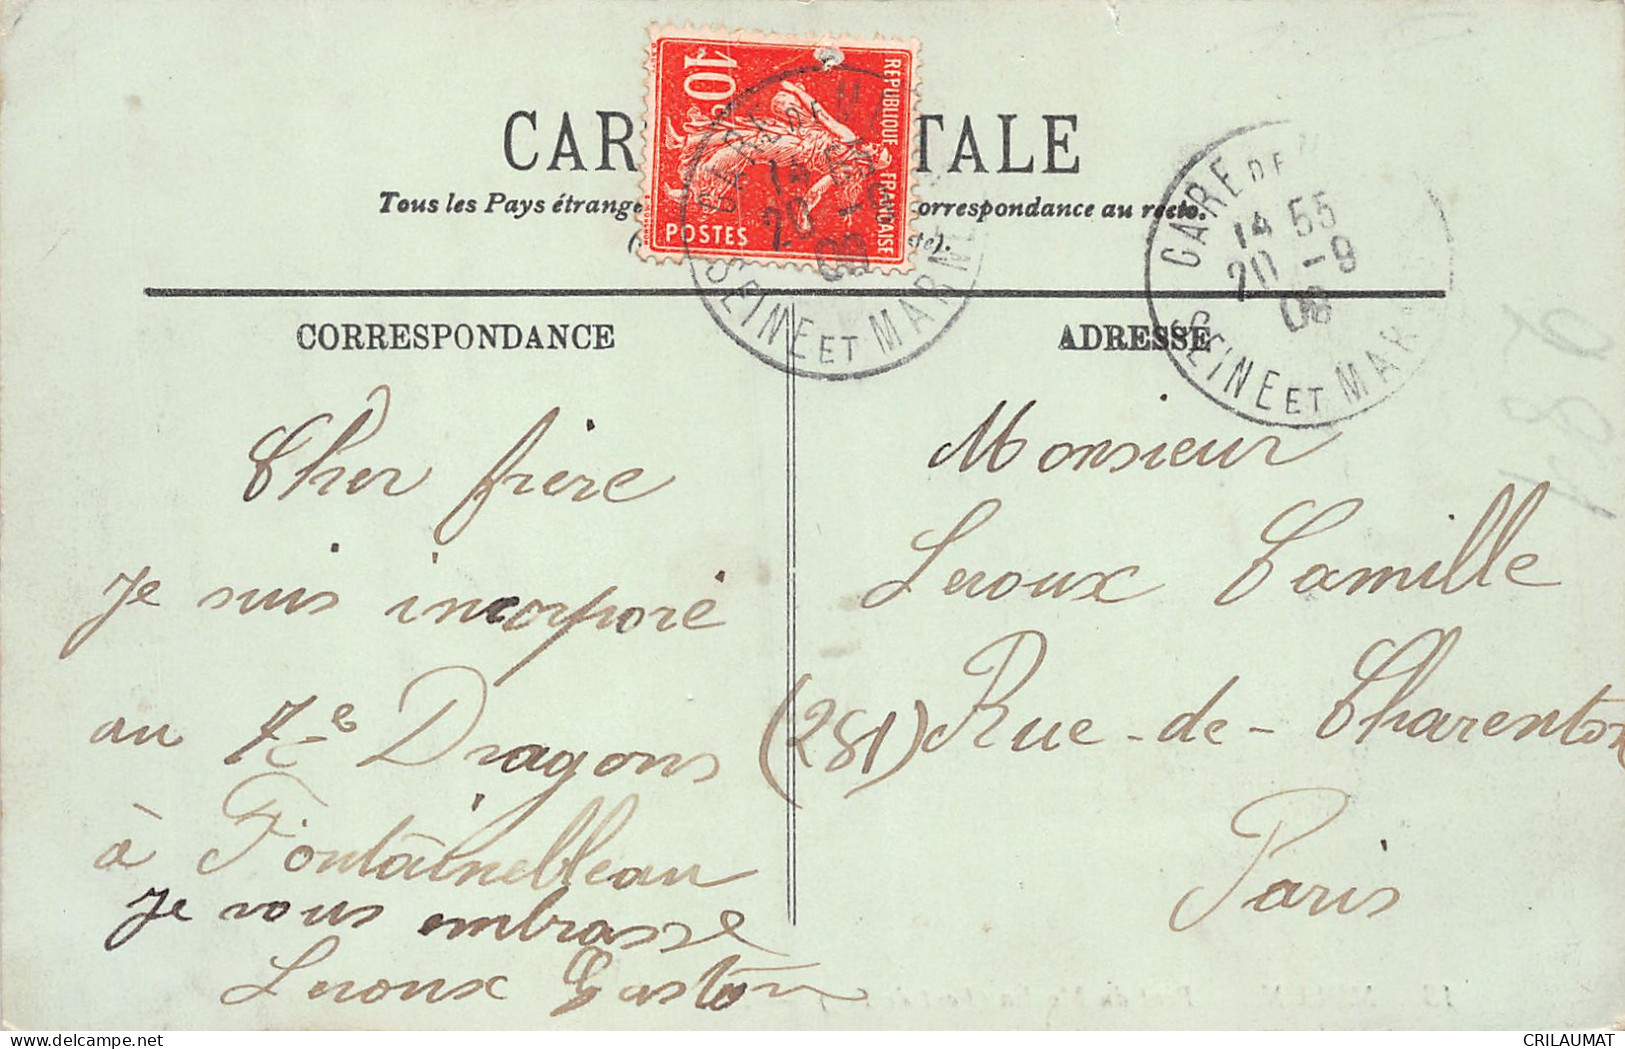 10
REPUBLIQUE FRANÇAISE
POSTES
CAR TALE
Tous les Pays étrange orrespondance au recto.
te).
GARE DE
14 55
20 -9
09
SEINE ET MARNE
GARE DE
14 55
20 -9
09
SEINE ET MAR
CORRESPONDANCE
Cher frère
Je suis incorporé
au 7e Dragons
à Fontainebleau
Je vous embrasse
Leroux Gaston
ADRESSE
Monsieur
Leroux Camille
(281) Rue-de-Charenton
Paris
281
CRILAUMAT